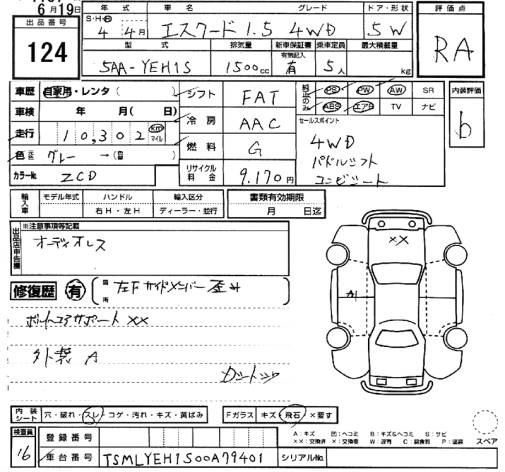 6月19日
出品番号
124
年式 車名 グレード ドア・形状
S・H・R 4年 4月 エスクード 1.5 4WD 5W
型式 排気量 新車保証書 乗車定員 最大積載量
5AA-YEH1S 1500cc 有 5人 kg
評価点
RA
車歴 自家用・レンタ ( )
車検 年 月( 日)
走行 10,302 km マイル
色 グレー → ( )
カラーNo ZCD
シフト FAT
冷房 AAC
燃料 G
リサイクル料金 9,170円
純正のみ PS PW AW SR
ABS エアB TV ナビ
セールスポイント
4WD
パドルシフト
コンビシート
内装評価
b
輸入車 モデル年式 ハンドル 輸入区分
右H・左H ディーラー・並行
書類有効期限
月 日迄
※注意事項等記載
出品店申告欄
オーディオレス
修復歴 有 箇所 左Fサイドメンバー歪み
ボルトコアサポート ××
外装 A
××
A1
内装シート 穴・破れ・スレ・コゲ・汚れ・キズ・黄ばみ
Fガラス キズ・飛石・×要す
検査員
16
登録番号
車台番号 TSMLYEH1S00A79401
シリアルNo.
A:キズ 凹:ヘコミ B:キズ&ヘコミ S:サビ
××:交換済 ×:交換要 W:波有 C:腐食 P:塗装
スペア